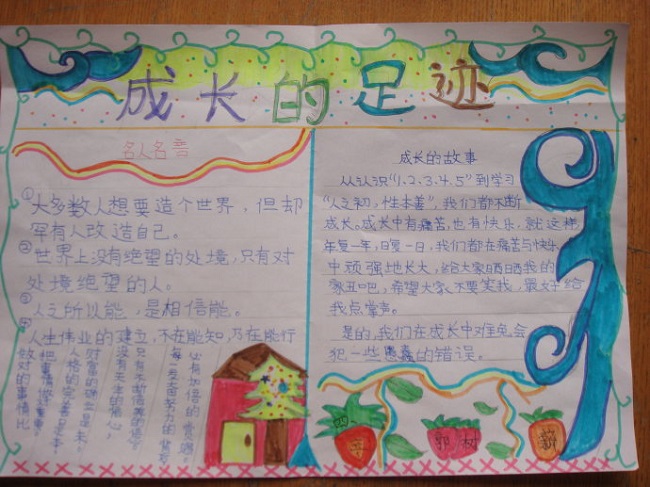 成长的足迹
名人名言
①大多数人想要造个世界,但却
罕有人改造自己。
②世界上没有绝望的处境,只有对
处境绝望的人。
③人之所以能,是相信能。
④人生伟业的建立,不在能知,乃在能行
做对的事情比
把事情做重要。
人格的完善是本,
财富的确立是末。
没有失
只有
每一
必有加倍的
成长的故事
从认识“1.2.3.4.5”到学习
“人之初,性本善”,我们都不断
成长。成长中有痛苦,也有快乐,就这样
年复一年,日复一日,我们都在痛苦与快乐
中顽强地长大,给大家晒晒我的
家丑吧,希望大家不要笑我,最好给
我点掌声。
是的,我们在成长中难免会
犯一些愚蠢的错误。
四、